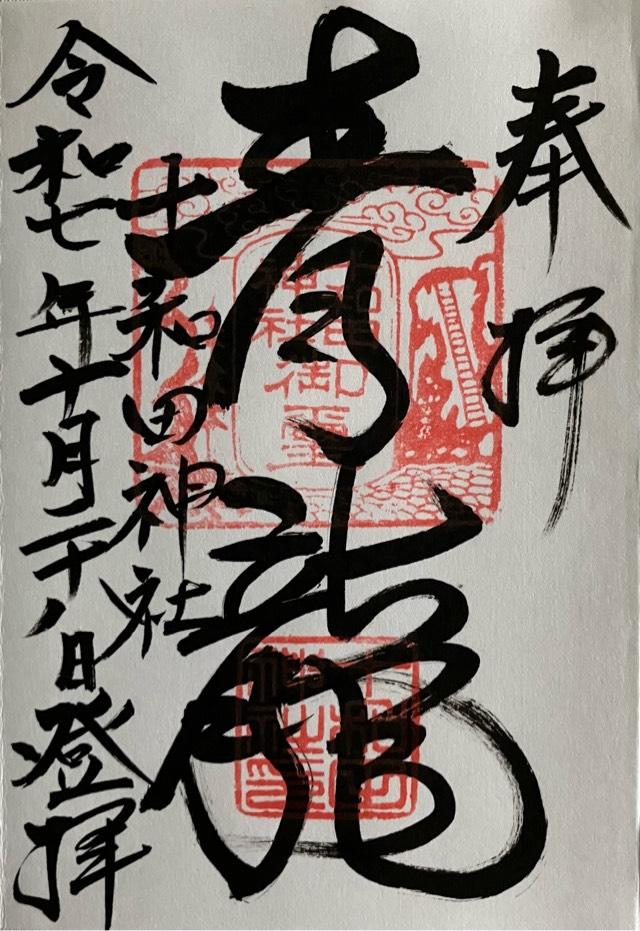 奉拝
青龍
十和田神社
令和七年十月二十八日登拝
神社御璽